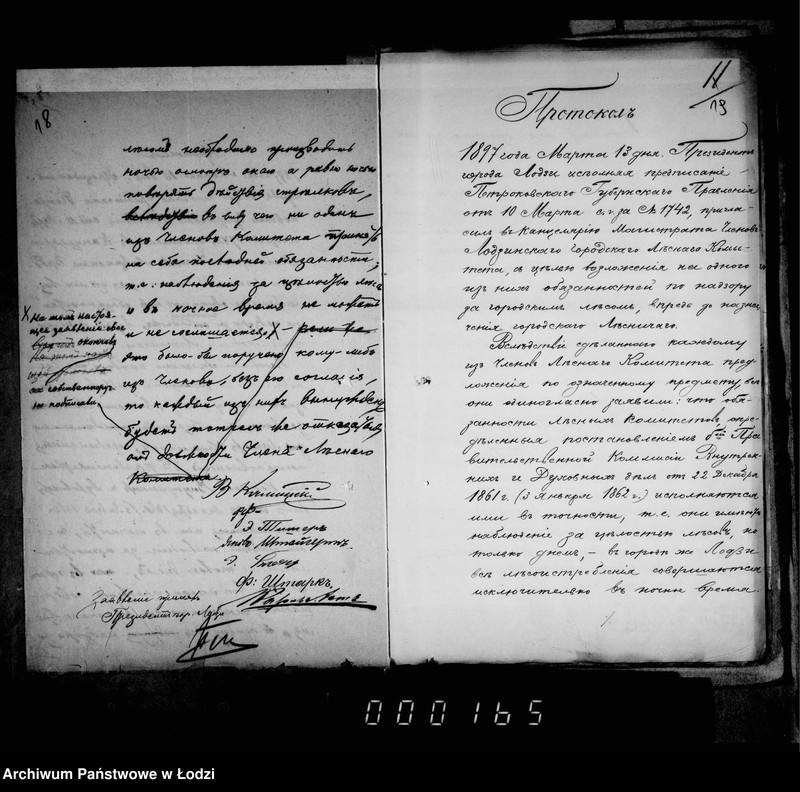 18
лѣсомъ необходимо производить
ночью осмотръ онаго а равно ночью
повѣрять дѣйствія стрѣлковъ,
въ виду чего ни одинъ
изъ Членовъ Комитета принять
на себя последней обязанности,
т.е. наблюденія за цѣлостью лѣса
и въ ночное время не можетъ
и не соглашается, X – если же
это было-бы поручено кому-либо
изъ Членовъ, безъ его согласія,
то каждый изъ нихъ вынужденъ
будетъ тотчасъ же отказаться
отъ должности Члена Лѣснаго
Комитета.
X На томъ настоя-
щее заявленіе свое
окончивъ
собственнору-
но подписали
Э. Титцеръ
Яковъ Штейгертъ
Ф: Штаркъ
Заявленіе принялъ
Президентъ гор. Лодзи
11/19
Протоколъ
1897 года Марта 13 дня. Президентъ
города Лодзи исполняя предписаніе
Петроковскаго Губернскаго Правленія
отъ 10 Марта с. г. за № 1742, пригла-
силъ въ канцелярію Магистрата Членовъ
Лодзинскаго Городскаго Лѣснаго Коми-
тета, съ цѣлью возложенія на одного
изъ нихъ обязанностей по надзору
за городскимъ лѣсомъ, впредь до назна-
ченія городскаго Лѣсничаго.
Вслѣдствіе сдѣланнаго каждому
изъ Членовъ Лѣснаго Комитета пред-
ложенія по означенному предмету, все
они единогласно заявили: что обя-
занности Лѣсныхъ Комитетовъ, опре-
дѣленныя постановленіемъ б. Пра-
вительственной Коммисіи Внутрен-
нихъ и Духовныхъ дѣлъ отъ 22 Декабря
1861 г. (3 Января 1862 г.) исполняются
ими въ точности, т. е. они имѣютъ
наблюденіе за цѣлостью лѣсовъ, но
только днемъ, – въ городѣ же Лодзи
всѣ лѣсоистребленія совершаются
исключительно въ ночное время.
000165
Archiwum Państwowe w Łodzi